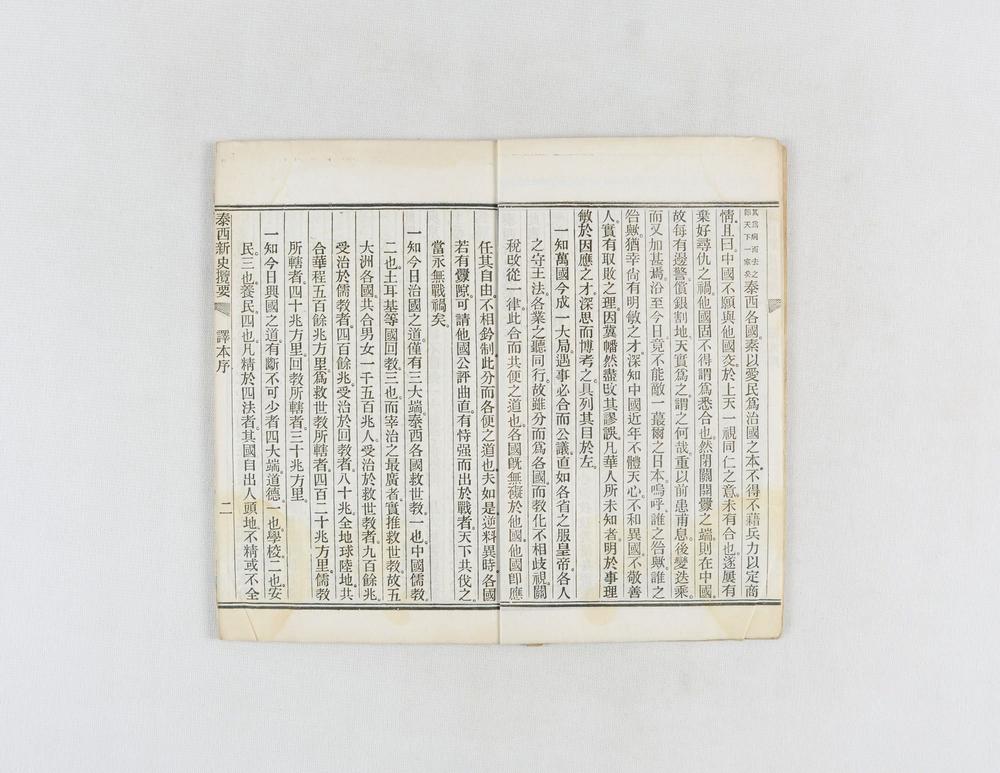 其爲病而去之
卽天下一家矣泰西各國素以愛民爲治國之本不得不藉兵力以定商
情且曰中國不願與他國交於上天一視同仁之意未有合也遂屢有
棄好尋仇之禍他國固不得謂爲悉合也然閉關開釁之端則在中國
故每有邊警償銀割地天實爲之謂之何哉重以前患甫息後變迭乘
而又加甚焉沿至今日竟不能敵一蕞爾之日本嗚呼誰之咎歟誰之
咎歟猶幸尙有明敏之才深知中國近年不體天心不和異國不敬善
人實有取敗之理因冀幡然盡改其謬誤凡華人所未知者明於事理
敏於因應之才深思而博考之具列其目於左
一知萬國今成一大局遇事必合而公議直如各省之服皇帝各人
之守王法各業之聽同行故雖分而爲各國而敎化不相歧視關
稅改從一律此合而共便之道也各國旣無礙於他國他國卽應
任其自由不相鈐制此分而各便之道也夫如是逆料異時各國
若有釁隙可請他國公評曲直有恃强而出於戰者天下共伐之
當永無戰禍矣
一知今日治國之道僅有三大端泰西各國救世敎一也中國儒敎
二也土耳基等國回敎三也而宰治之最廣者實推救世敎故五
大洲各國共合男女一千五百兆人受治於救世敎者九百餘兆
受治於儒敎者四百餘兆受治於回敎者八十兆全地球陸地共
合華程五百餘兆方里爲救世敎所轄者四百二十兆方里儒敎
所轄者四十兆方里回敎所轄者三十兆方里
一知今日興國之道有斷不可少者四大端道德一也學校二也安
民三也養民四也凡精於四法者其國自出人頭地不精或不全
泰西新史攬要
譯本序
二